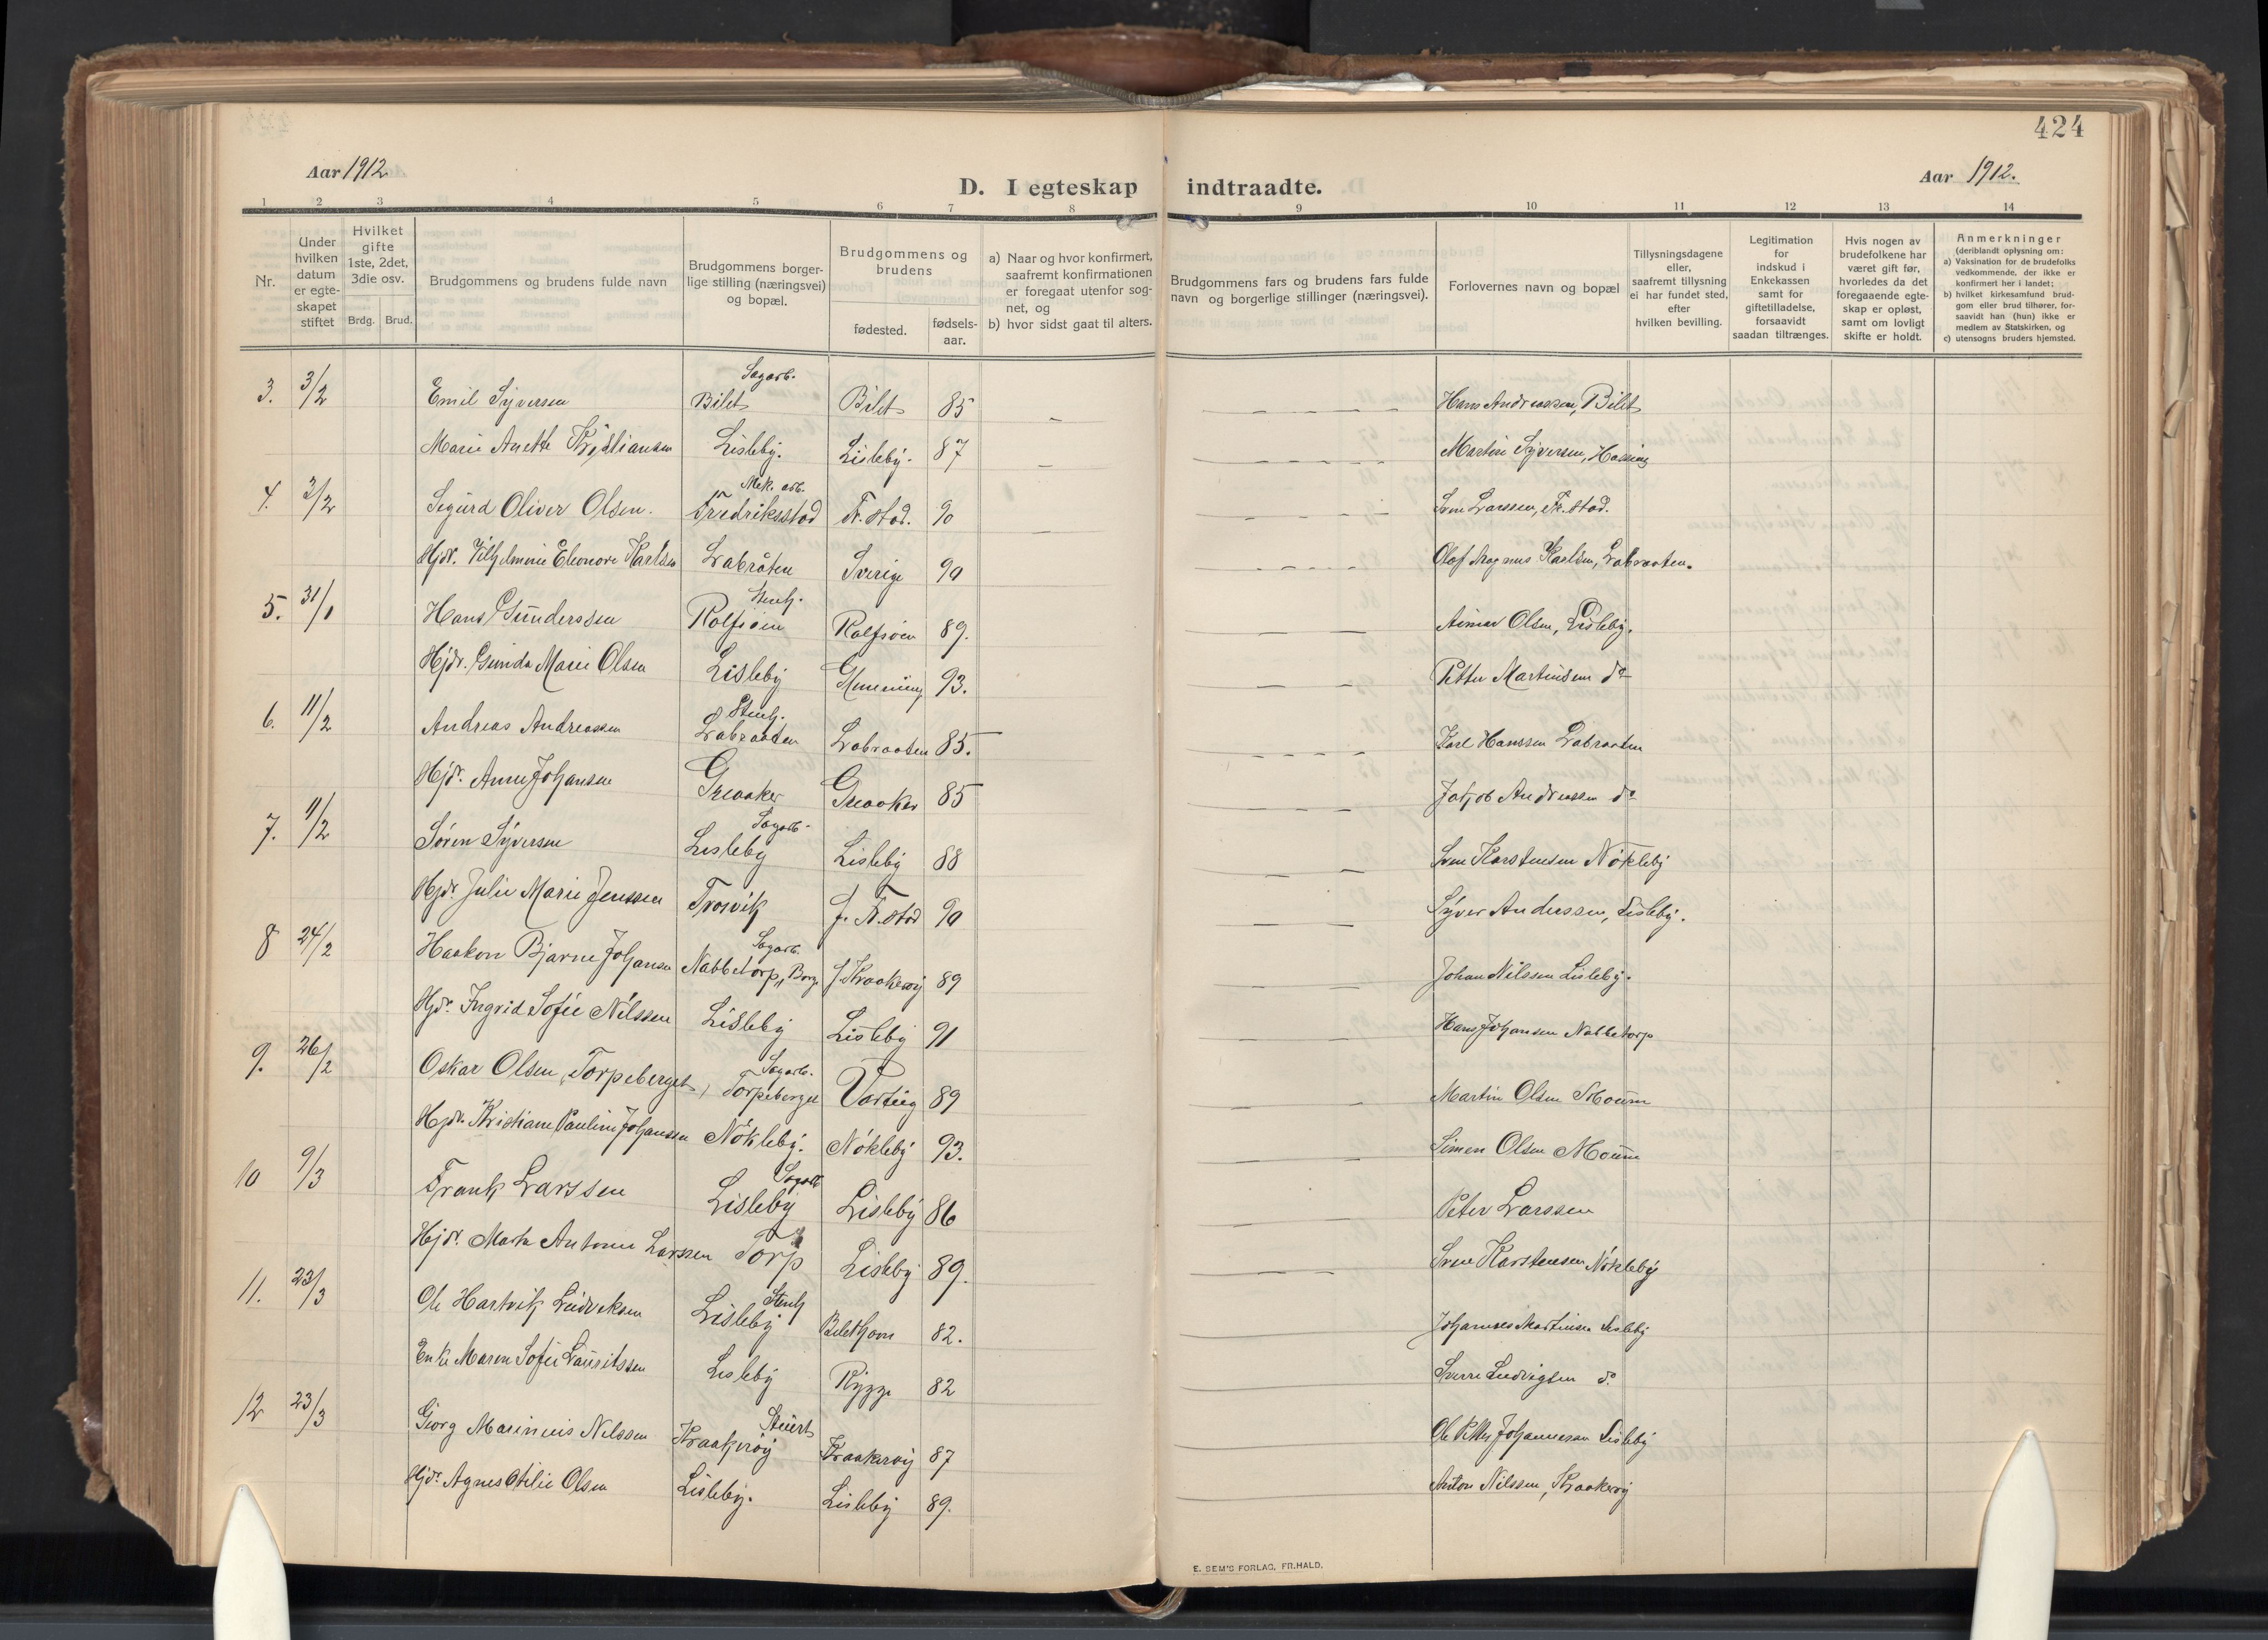 424
Aar 1912
D. I egteskap indtraadte.
Aar 1912.
1 2 3 4 5 6 7 8 9 10 11 12 13 14
Nr.
Under hvilken datum er egte-skapet stiftet
Hvilket gifte 1ste, 2det, 3die osv.
Brdg. Brud.
Brudgommens og brudens fulde navn
Brudgommens borger-
lige stilling (næringsvei)
og bopæl.
Brudgommens og
brudens
fødested.
fødsels-
aar.
a) Naar og hvor konfirmert,
saafremt konfirmationen
er foregaat utenfor sog-
net, og
b) hvor sidst gaat til alters.
Brudgommens fars og brudens fars fulde
navn og borgerlige stillinger (næringsvei).
Forlovernes navn og bopæl
Tillysningsdagene
eller,
saafremt tillysning
ei har fundet sted,
efter
hvilken bevilling.
Legitimation
for
indskud i
Enkekassen
samt for
giftetilladelse,
forsaavidt
saadan tiltrænges.
Hvis nogen av
brudefolkene har
været gift før,
hvorledes da det
foregaaende egte-
skap er opløst,
samt om lovligt
skifte er holdt.
Anmerkninger
(deriblandt oplysning om:
a) Vaksination for de brudefolks
vedkommende, der ikke er
konfirmert her i landet;
b) hvilket kirkesamfund brud-
gom eller brud tilhører, for-
saavidt han (hun) ikke er
medlem av Statskirken, og
c) utensogns bruders hjemsted.
Sagarb.
3. 3/2 Emil Syversen Bilet Bilet 85 Hans Andreassen, Bilet
Marie Anette Kristiansen Lisleby. Lisleby. 87 Martin Syversen,
Mek. arb.
4. 3/2 Sigurd Oliver Olsen. Fredriksstad Fr.stad. 90 Sven Larssen, Fr.stad.
Hjdr. Vilhelmine Eleonore Karlsen Labråten Sverige 90 Olaf Magnus Karlsen, Labraaten.
Stenh.
5. 31/1 Hans Gunderssen Rolfsøen Rolfsøen 89. Olsen, Lisleby.
Hjdr. Gunda Marie Olsen Lisleby Glemminge 93. Petter Martinsen do
Stenh.
6. 11/2 Andreas Andreassen Labraaten Labraaten 85. Karl Hanssen Labraaten
Hjdr. Anna Johansen Greaaker Greaaker 85 Jakob Andreassen do
Sagarb.
7. 11/2 Søren Syversen Lisleby Lisleby 88 Sven Karstensen Nökleby
Hjdr. Julie Marie Jenssen Trosvik f. Fr.stad 90 Syver Anderssen, Lisleby.
Sagarb.
8 24/2 Haakon Bjarne Johansen Nabbetorp, Borge f. Kraakerøy 89 Johan Nilssen Lisleby.
Hjdr. Ingrid Sofie Nilssen Lisleby Lisleby 91 Hans Johansen Nabbetorp
Sagarb.
9. 26/2 Oskar Olsen, Torpeberget, Torpeberget Varteig 89 Martin Olsen Moum
Hjdr. Kristiane Pauline Johanssen Nökleby. Nökleby 93. Simen Olsen Moum
Sagarb
10 9/3 Frank Larssen Lisleby Lisleby 86 Peter Larssen
Hjdr. Marta Antonie Larssen Torp Lisleby 89. Sven Karstensen Nökleby
Stenh
11. 23/3 Ole Hartvik Ludviksen Lisleby Bilethavn 82. Johannes Martinsen Lisleby
Enke Maren Sofie Lauritssen Lisleby Rygge 82 Sverre Ludvigsen do
12 23/3 Georg Marinius Nilssen Kraakerøy Kraakerøy 87 Ole Petter Johannessen Lisleby
Hjdr. Agnes Otilie Olsen Lisleby. Lisleby 89. Anton Nilssen, Kraakerøy
E. SEM'S FORLAG, FR.HALD.